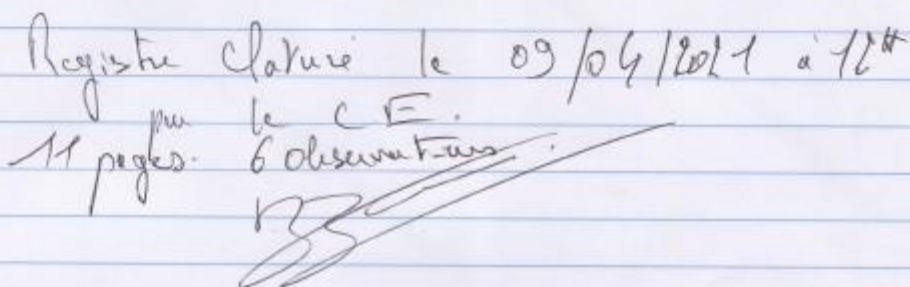 Registre Cloturé le 09/04/2021 à 12H
par le CE.
11 pages. 6 observations.